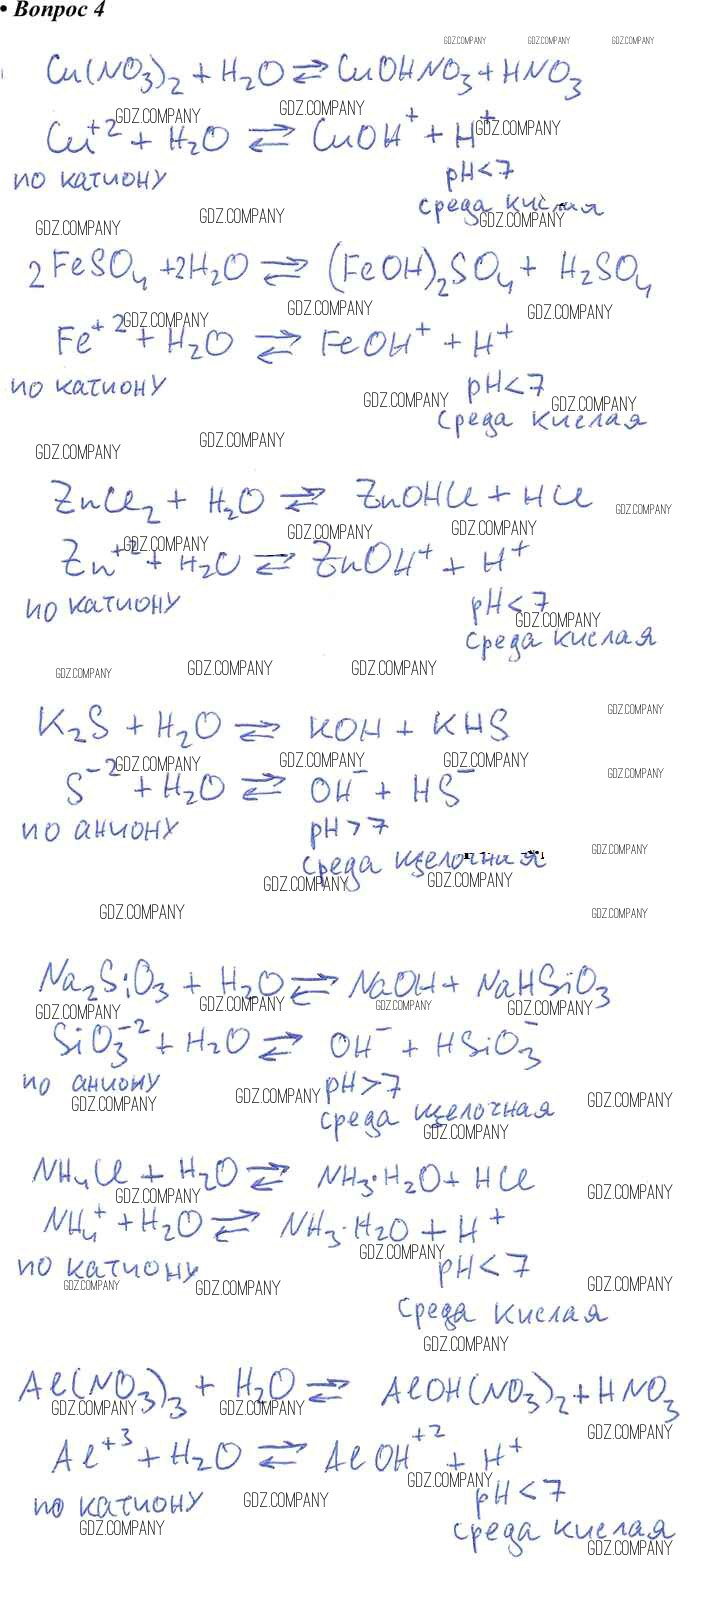 • Вопрос 4
GDZ.COMPANY GDZ.COMPANY GDZ.COMPANY
Cu(NO₃)₂ + H₂O ⇄ CuOHNO₃ + HNO₃
GDZ.COMPANY GDZ.COMPANY GDZ.COMPANY
Cu⁺² + H₂O ⇄ CuOH⁺ + H⁺
по катиону pH<7
среда кислая
GDZ.COMPANY GDZ.COMPANY GDZ.COMPANY
2FeSO₄ + 2H₂O ⇄ (FeOH)₂SO₄ + H₂SO₄
GDZ.COMPANY GDZ.COMPANY GDZ.COMPANY
Fe⁺² + H₂O ⇄ FeOH⁺ + H⁺
по катиону pH<7
GDZ.COMPANY GDZ.COMPANY
среда кислая
GDZ.COMPANY GDZ.COMPANY
ZnCl₂ + H₂O ⇄ ZnOHCl + HCl
GDZ.COMPANY
GDZ.COMPANY GDZ.COMPANY GDZ.COMPANY
Zn⁺² + H₂O ⇄ ZnOH⁺ + H⁺
по катиону pH<7
GDZ.COMPANY
среда кислая
GDZ.COMPANY GDZ.COMPANY GDZ.COMPANY
GDZ.COMPANY
K₂S + H₂O ⇄ KOH + KHS
GDZ.COMPANY GDZ.COMPANY GDZ.COMPANY GDZ.COMPANY
S⁻² + H₂O ⇄ OH⁻ + HS⁻
по аниону pH>7
GDZ.COMPANY
среда щелочная
GDZ.COMPANY GDZ.COMPANY
GDZ.COMPANY GDZ.COMPANY
Na₂SiO₃ + H₂O ⇄ NaOH + NaHSiO₃
GDZ.COMPANY GDZ.COMPANY GDZ.COMPANY GDZ.COMPANY
SiO₃⁻² + H₂O ⇄ OH⁻ + HSiO₃⁻
по аниону pH>7
GDZ.COMPANY GDZ.COMPANY GDZ.COMPANY
среда щелочная
GDZ.COMPANY
NH₄Cl + H₂O ⇄ NH₃·H₂O + HCl
GDZ.COMPANY GDZ.COMPANY
NH₄⁺ + H₂O ⇄ NH₃·H₂O + H⁺
GDZ.COMPANY
по катиону pH<7
GDZ.COMPANY GDZ.COMPANY GDZ.COMPANY
среда кислая
GDZ.COMPANY
Al(NO₃)₃ + H₂O ⇄ AlOH(NO₃)₂ + HNO₃
GDZ.COMPANY GDZ.COMPANY GDZ.COMPANY
Al⁺³ + H₂O ⇄ AlOH⁺² + H⁺
GDZ.COMPANY
по катиону pH<7
GDZ.COMPANY GDZ.COMPANY
среда кислая
GDZ.COMPANY